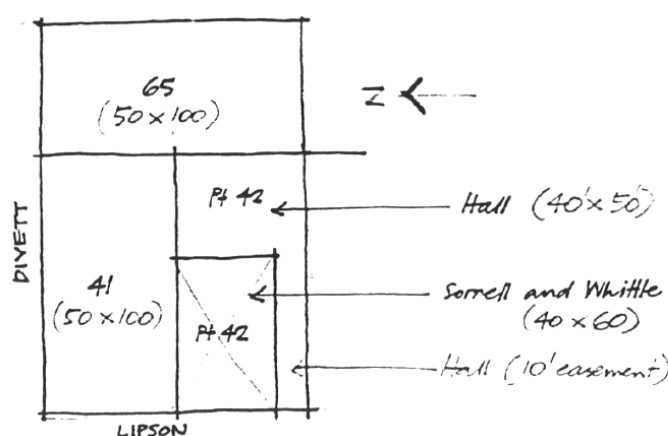 65
(50 x 100)
N
Pt 42
Hall (40' x 50')
DIVETT
41
(50 x 100)
Pt 42
Sorrell and Whittle
(40 x 60)
Hall (10' easement)
LIPSON